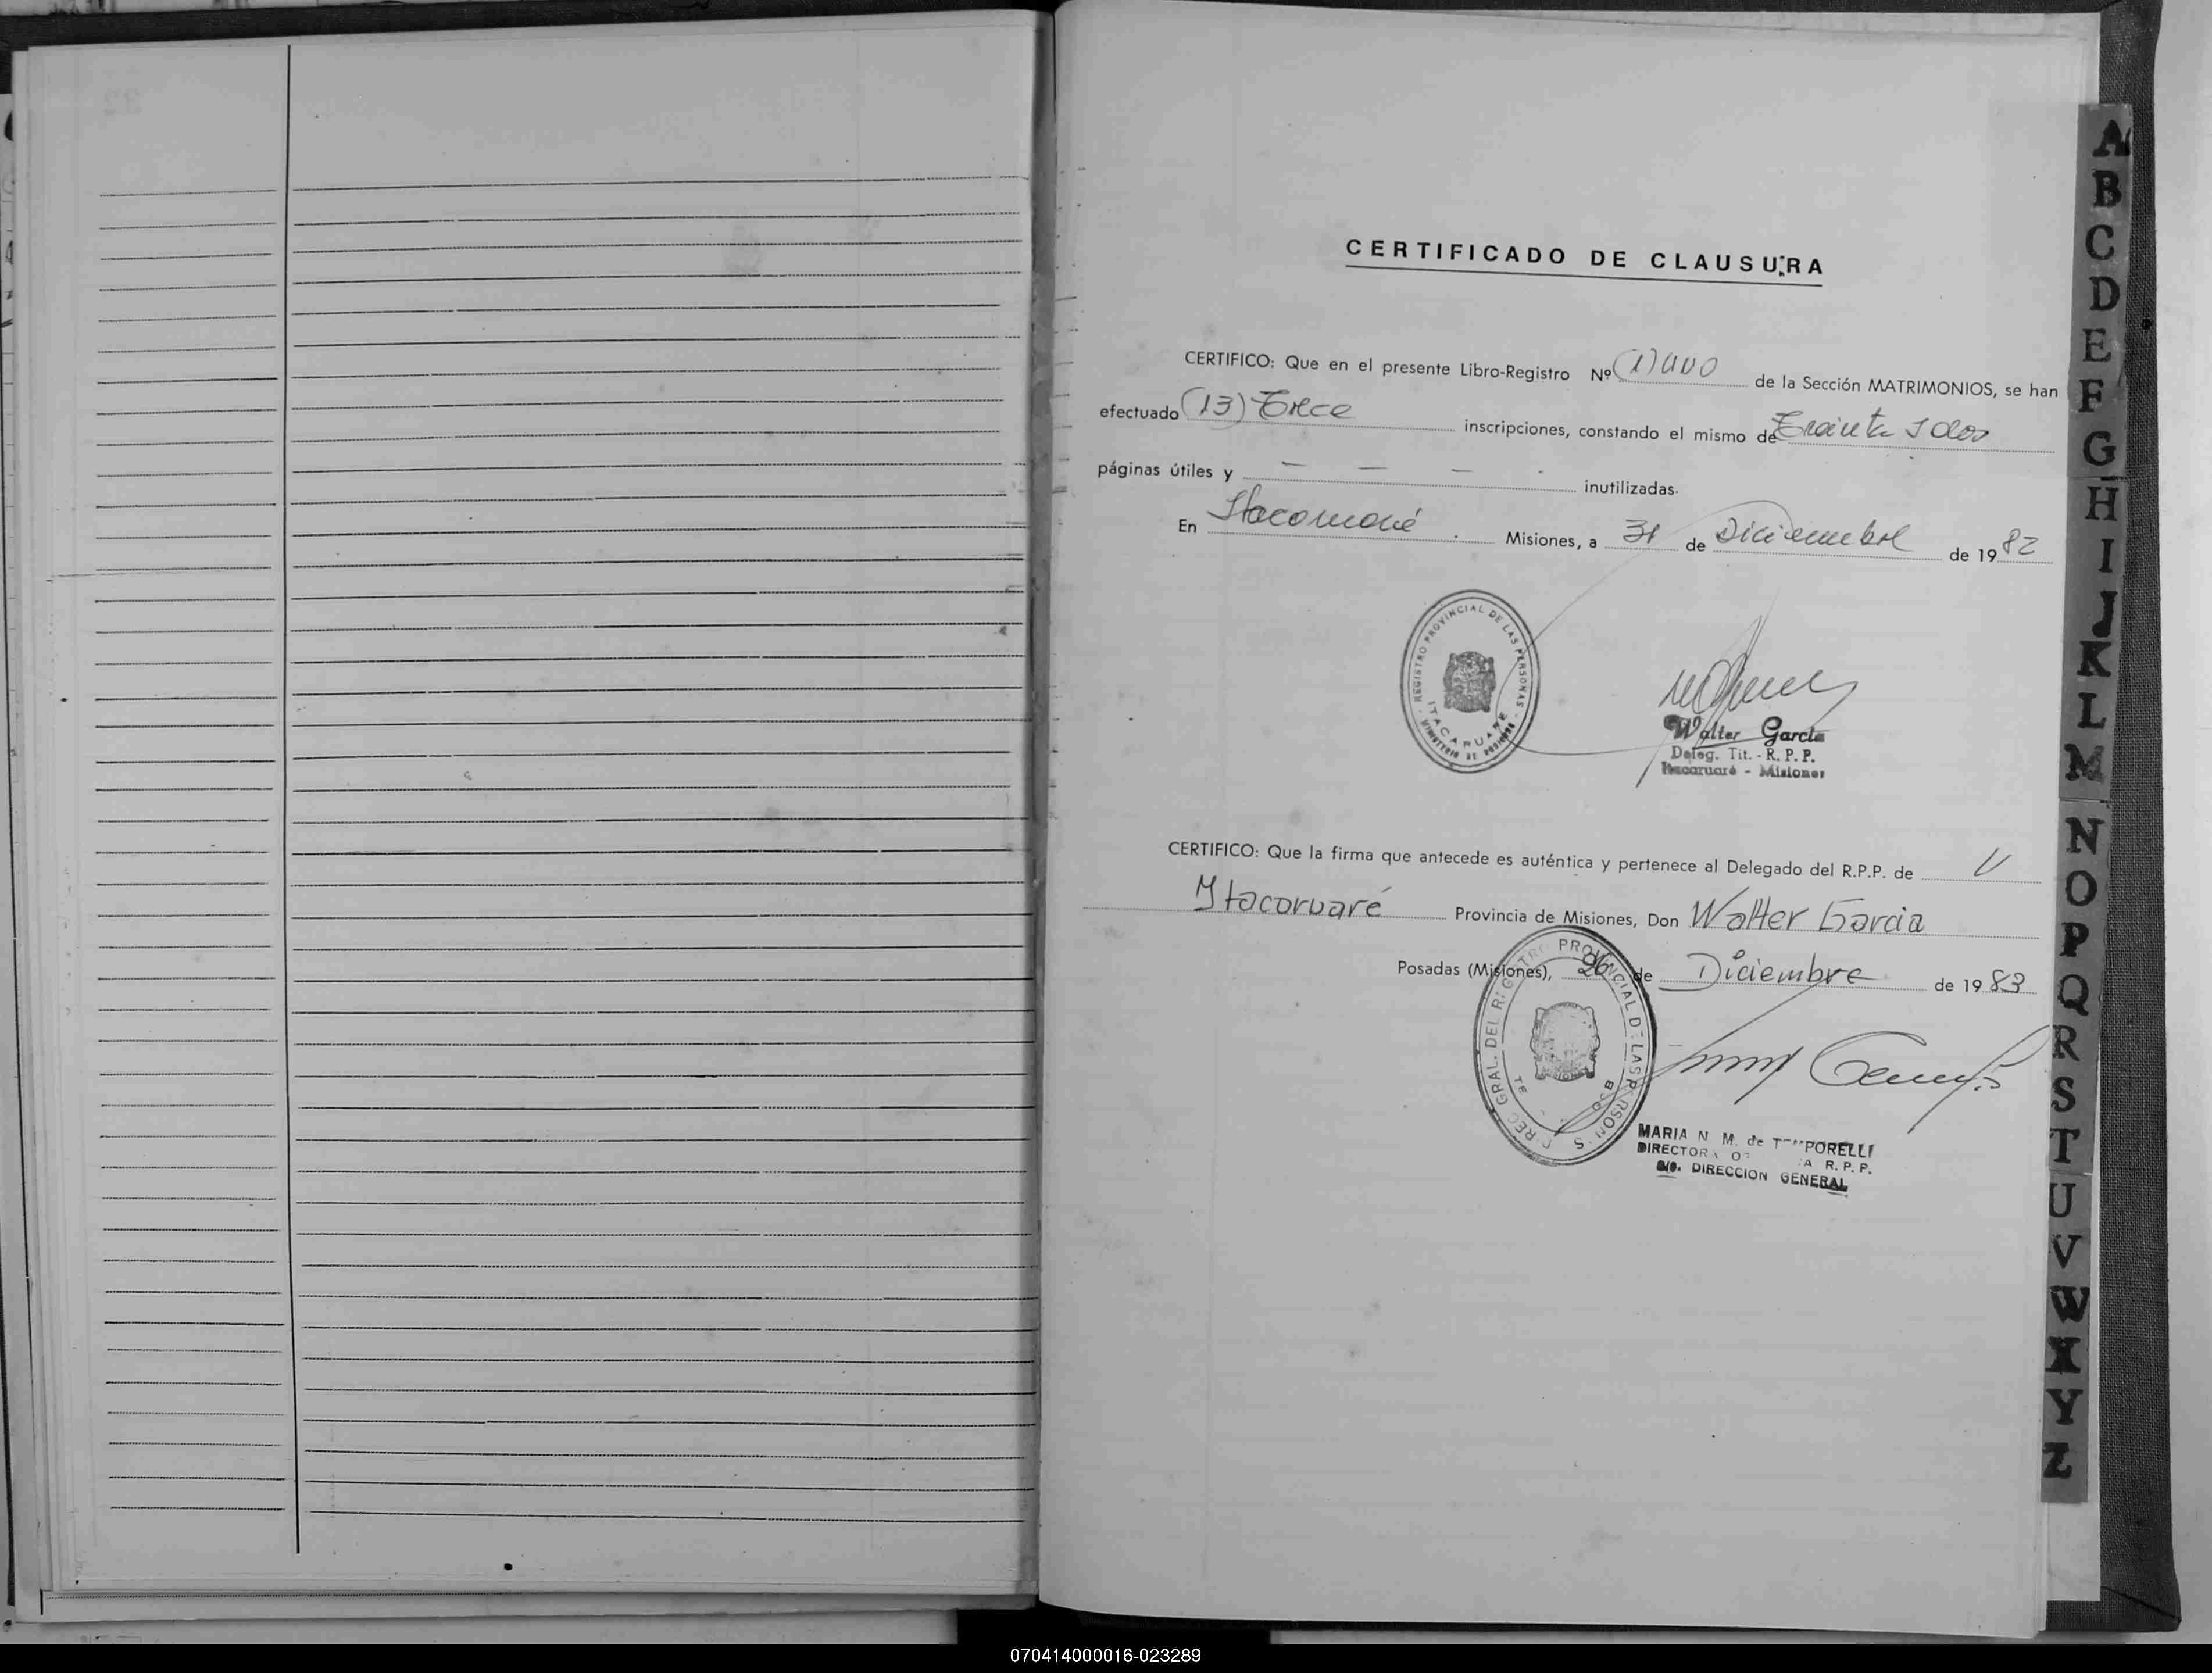 CERTIFICADO DE CLAUSURA
CERTIFICO: Que en el presente Libro-Registro Nº (1) uno de la Sección MATRIMONIOS, se han
efectuado (13) Trece inscripciones, constando el mismo de Treinta y dos
páginas útiles y — — — inutilizadas.
En Itacaruaré Misiones, a 31 de Diciembre de 1982
REGISTRO PROVINCIAL DE LAS PERSONAS
ITACARUARE
Walter García
Deleg. Tit. - R. P. P.
Itacaruaré - Misiones
CERTIFICO: Que la firma que antecede es auténtica y pertenece al Delegado del R.P.P. de
Itacaruaré Provincia de Misiones, Don Walter Garcia
Posadas (Misiones), 26 de Diciembre de 1983
GRAL. DEL REGISTRO PROVINCIAL DE LAS PERSONAS
MARIA N. M. de TEMPORELLI
DIRECTORA R. P. P.
a/c. DIRECCION GENERAL
A
B
C
D
E
F
G
H
I
J
K
L
M
N
O
P
Q
R
S
T
U
V
W
X
Y
Z
070414000016-023289